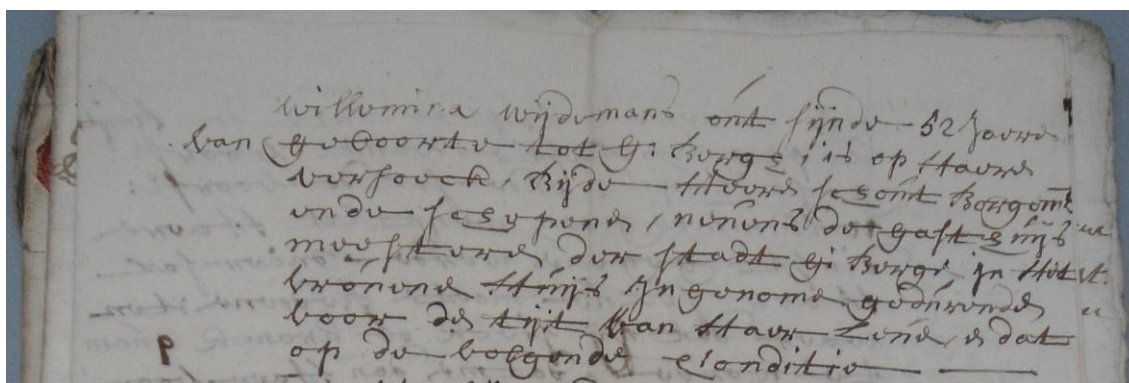 willemina wijdemans out sijnde 52 Jaere
van geboorte tot G: Berge, is op haere
versoeck, Bijde Heere schout Borgemr
ende schepene, nevens de gasthuijs
meestere der stadt G: Berge in Het
vrouwe Huijs Ingenome gedurende
voor de tijt van Haer Leve, e dat
op de volgende Conditie
P